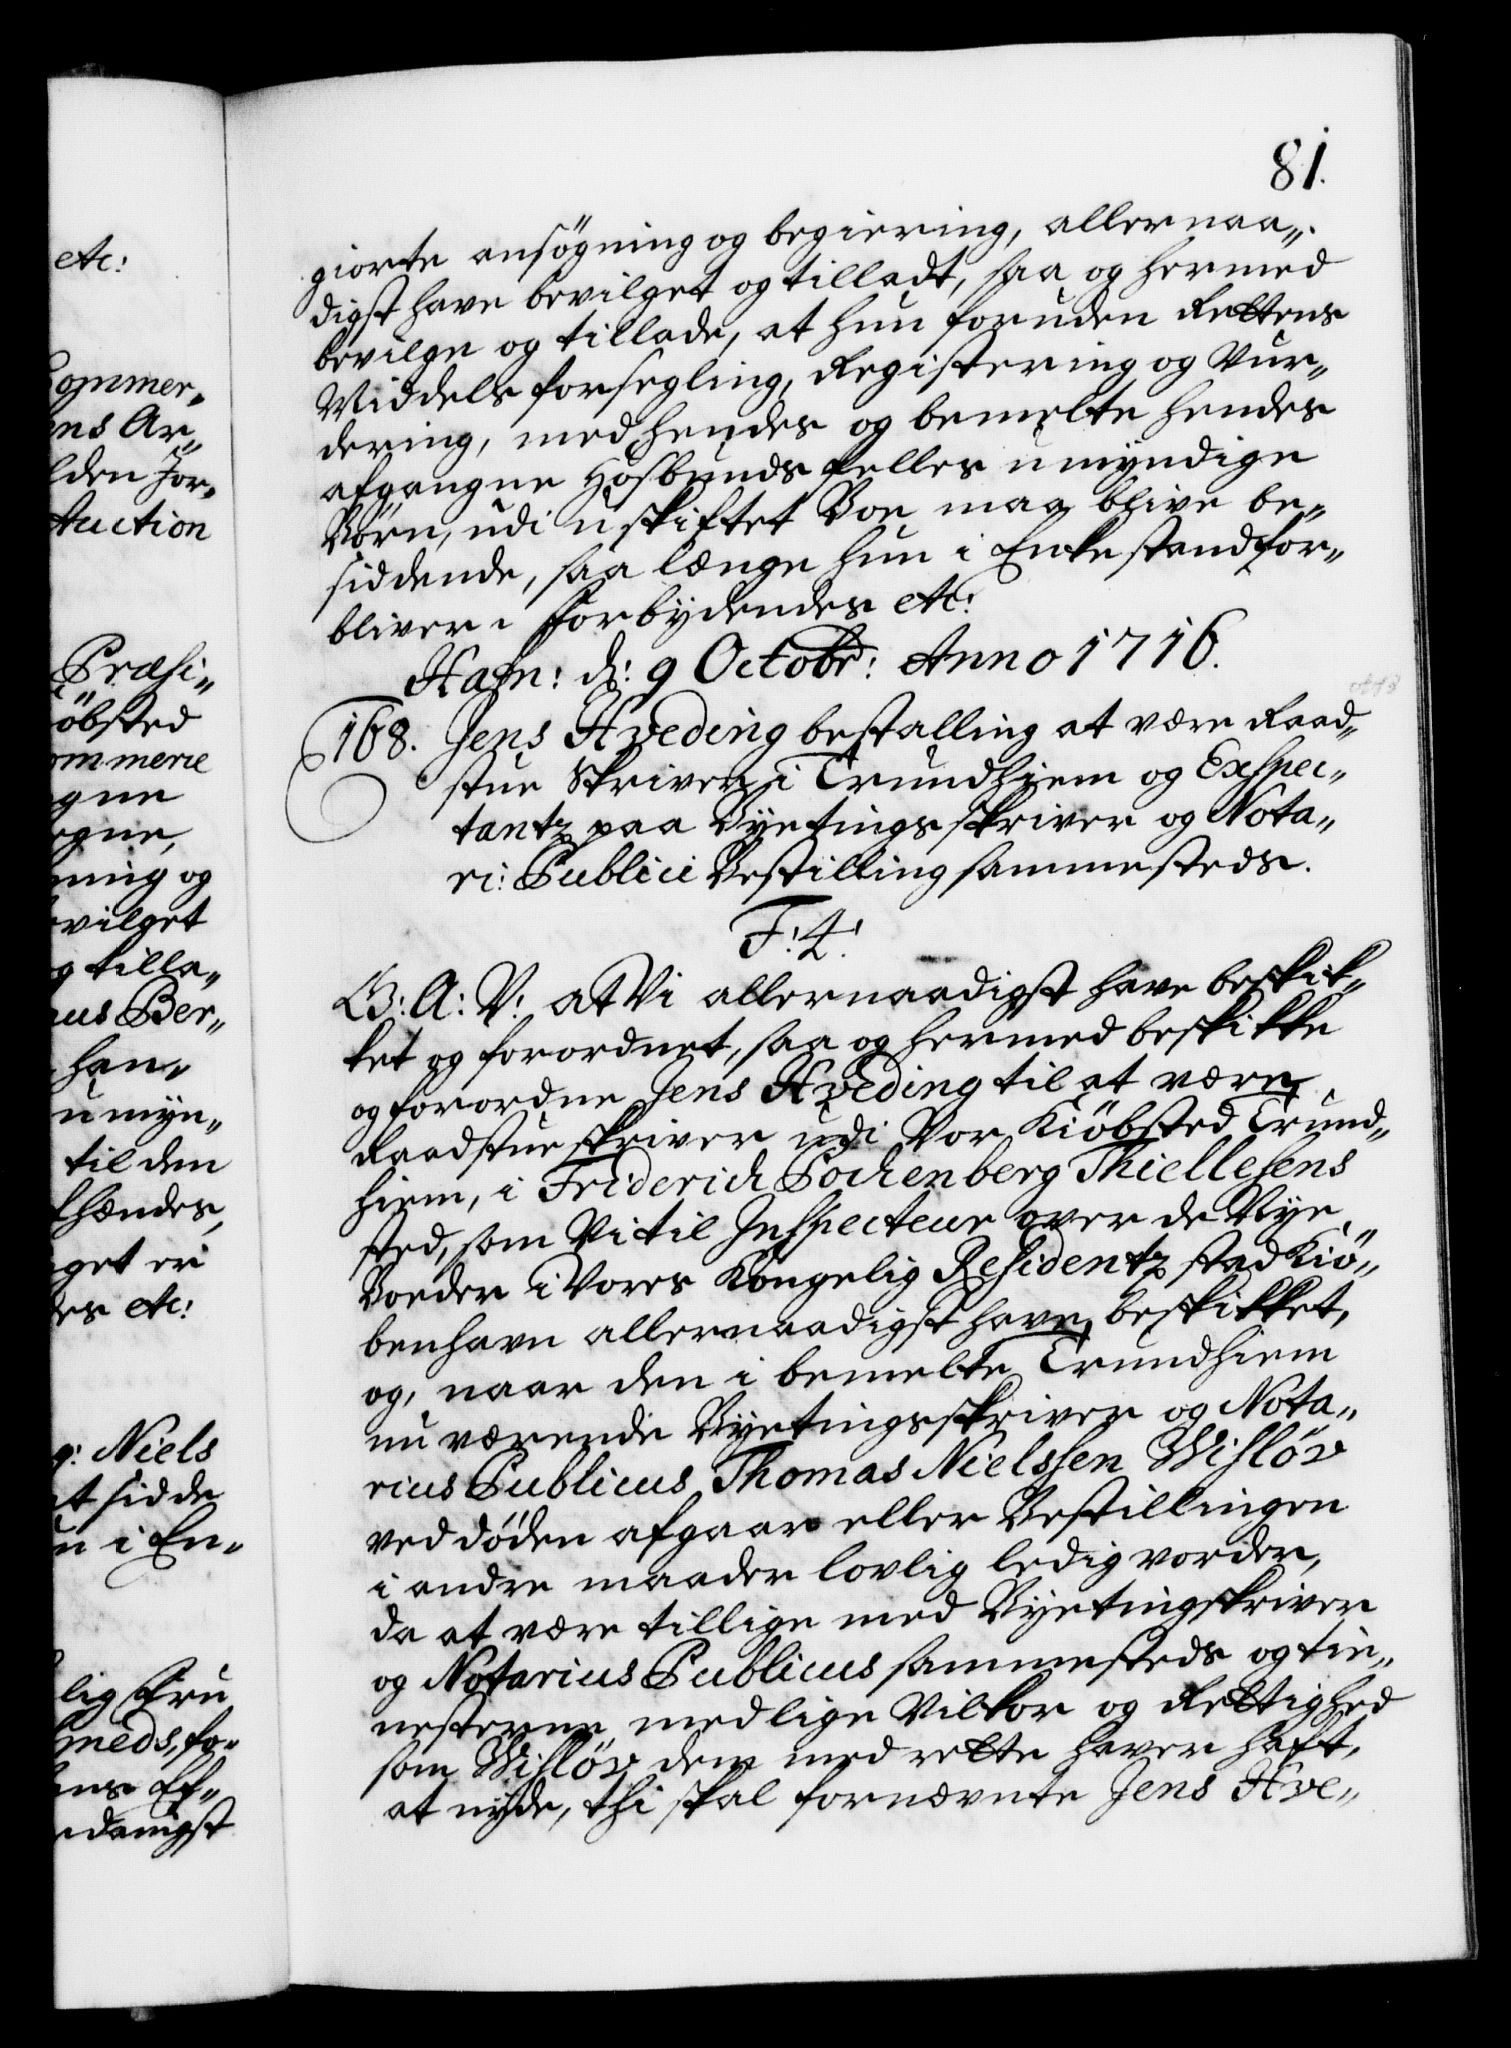 etc:
Commer„
ens Ar„
lden For„
Auction
Præsi„
iöbsted
ommerie
gne
egne,
ning og
evilget
g tilla„
nus Ber„
han„
umyn„
til den
lhændes,
get er
des etc:
g: Niels
at sidde
un i En„
lig Fru
smeds, fo„
ens Ef„
ndanigst
81.
giorte ansøgning og begiering, allernaa„
digst have bevilget og tilladt, saa og hermed
bevilge og tillade, at hun foruden Rettens
Middels forsegling, Registering og Vur„
dering, med hendes og bemelte hendes
afgangne Hosbunds felles umyndige
Børn, udi uskiftet Boe maa blive be„
siddende, saa længe hun i Enkestand for„
bliver. Forbydendes etc:
Hafn: d: 9 Octobr: Anno 1716.
168. Jens Hveding bestalling at være Raad„
stue Skriver i Trundhiem og Exspec„
tantz paa Byetingsskriver og Nota„
ri: Publici Bestilling sammesteds.
F:4:
G: A: V: at Vi allernaadigst have beskik„
ket og forordnet, saa og hermed beskikke
og forordne Jens Hveding til at være
Raadstueskriver udi Vor Kiöbsted Trund„
hiem, i Friderich Pochenberg Thiellesens
sted, som Vi til Inspecteur over de Nye
Boeder i Vores Kongelig Residentz stad Kiö„
benhavn allernaadigst have beskikket,
og, naar den i bemelte Trundhiem
nu værende Byetingsskriver og Nota„
rius Publicus Thomas Nielssen Wisløv
ved döden afgaar eller Bestillingen
i andre maader lovlig ledig vorder,
da at være tillige med Byetingskriver
og Notarius Publicus sammesteds og tie„
nesterne med lige Vilkor og Rettighed
som Wisløv dem med rette haver haft,
at nyde, thi skal fornævnte Jens Hve„